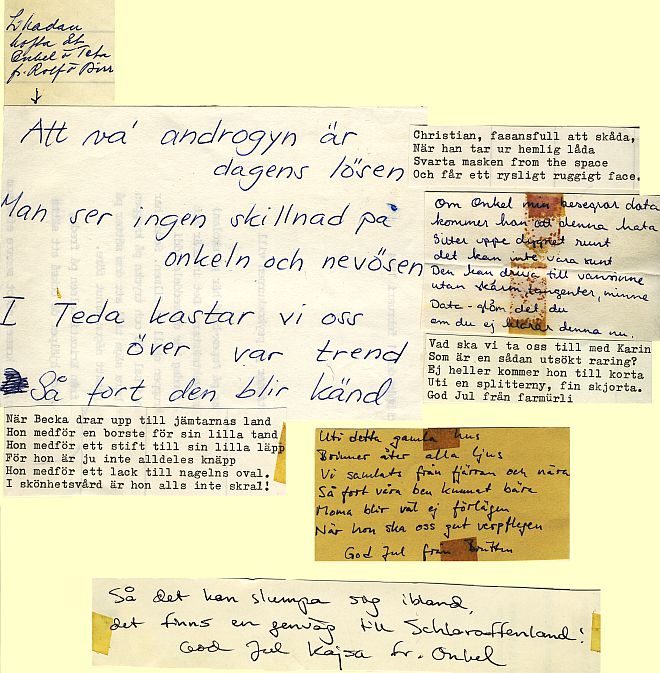 Likadan
kofta åt
Onkel o Teta
fr. Rolf o Birr
Att va' androgyn är
dagens lösen
Man ser ingen skillnad på
onkeln och nevösen
I Teda kastar vi oss
över var trend
Så fort den blir känd
Christian, fasansfull att skåda,
När han tar ur hemlig låda
Svarta masken from the space
Och får ett rysligt ruggigt face.
Om Onkel min besegrar data
kommer han att denna hata
Sitter uppe dygnet runt
det kan inte vara sunt
Den kan driva till vansinne
utan skärm, tangenter, minne
Data - glöm det du
om du ej klarar denna nu.
Vad ska vi ta oss till med Karin
Som är en sådan utsökt raring?
Ej heller kommer hon till korta
Uti en splitterny, fin skjorta.
God Jul från farmürli
När Becka drar upp till jämtarnas land
Hon medför en borste för sin lilla tand
Hon medför ett stift till sin lilla läpp
För hon är ju inte alldeles knäpp
Hon medför ett lack till nagelns oval.
I skönhetsvård är hon alls inte skral!
Uti detta gamla hus
Brinner åter alla ljus
Vi samlats från fjärran och nära
Så fort våra ben kunnat bära
Moma blir väl ej förlägen
När hon ska oss gut verpflegen
God Jul från
Så det kan slumpa sig ibland,
det finns en genväg till Schlaraffenland!
God Jul Kajsa fr. Onkel